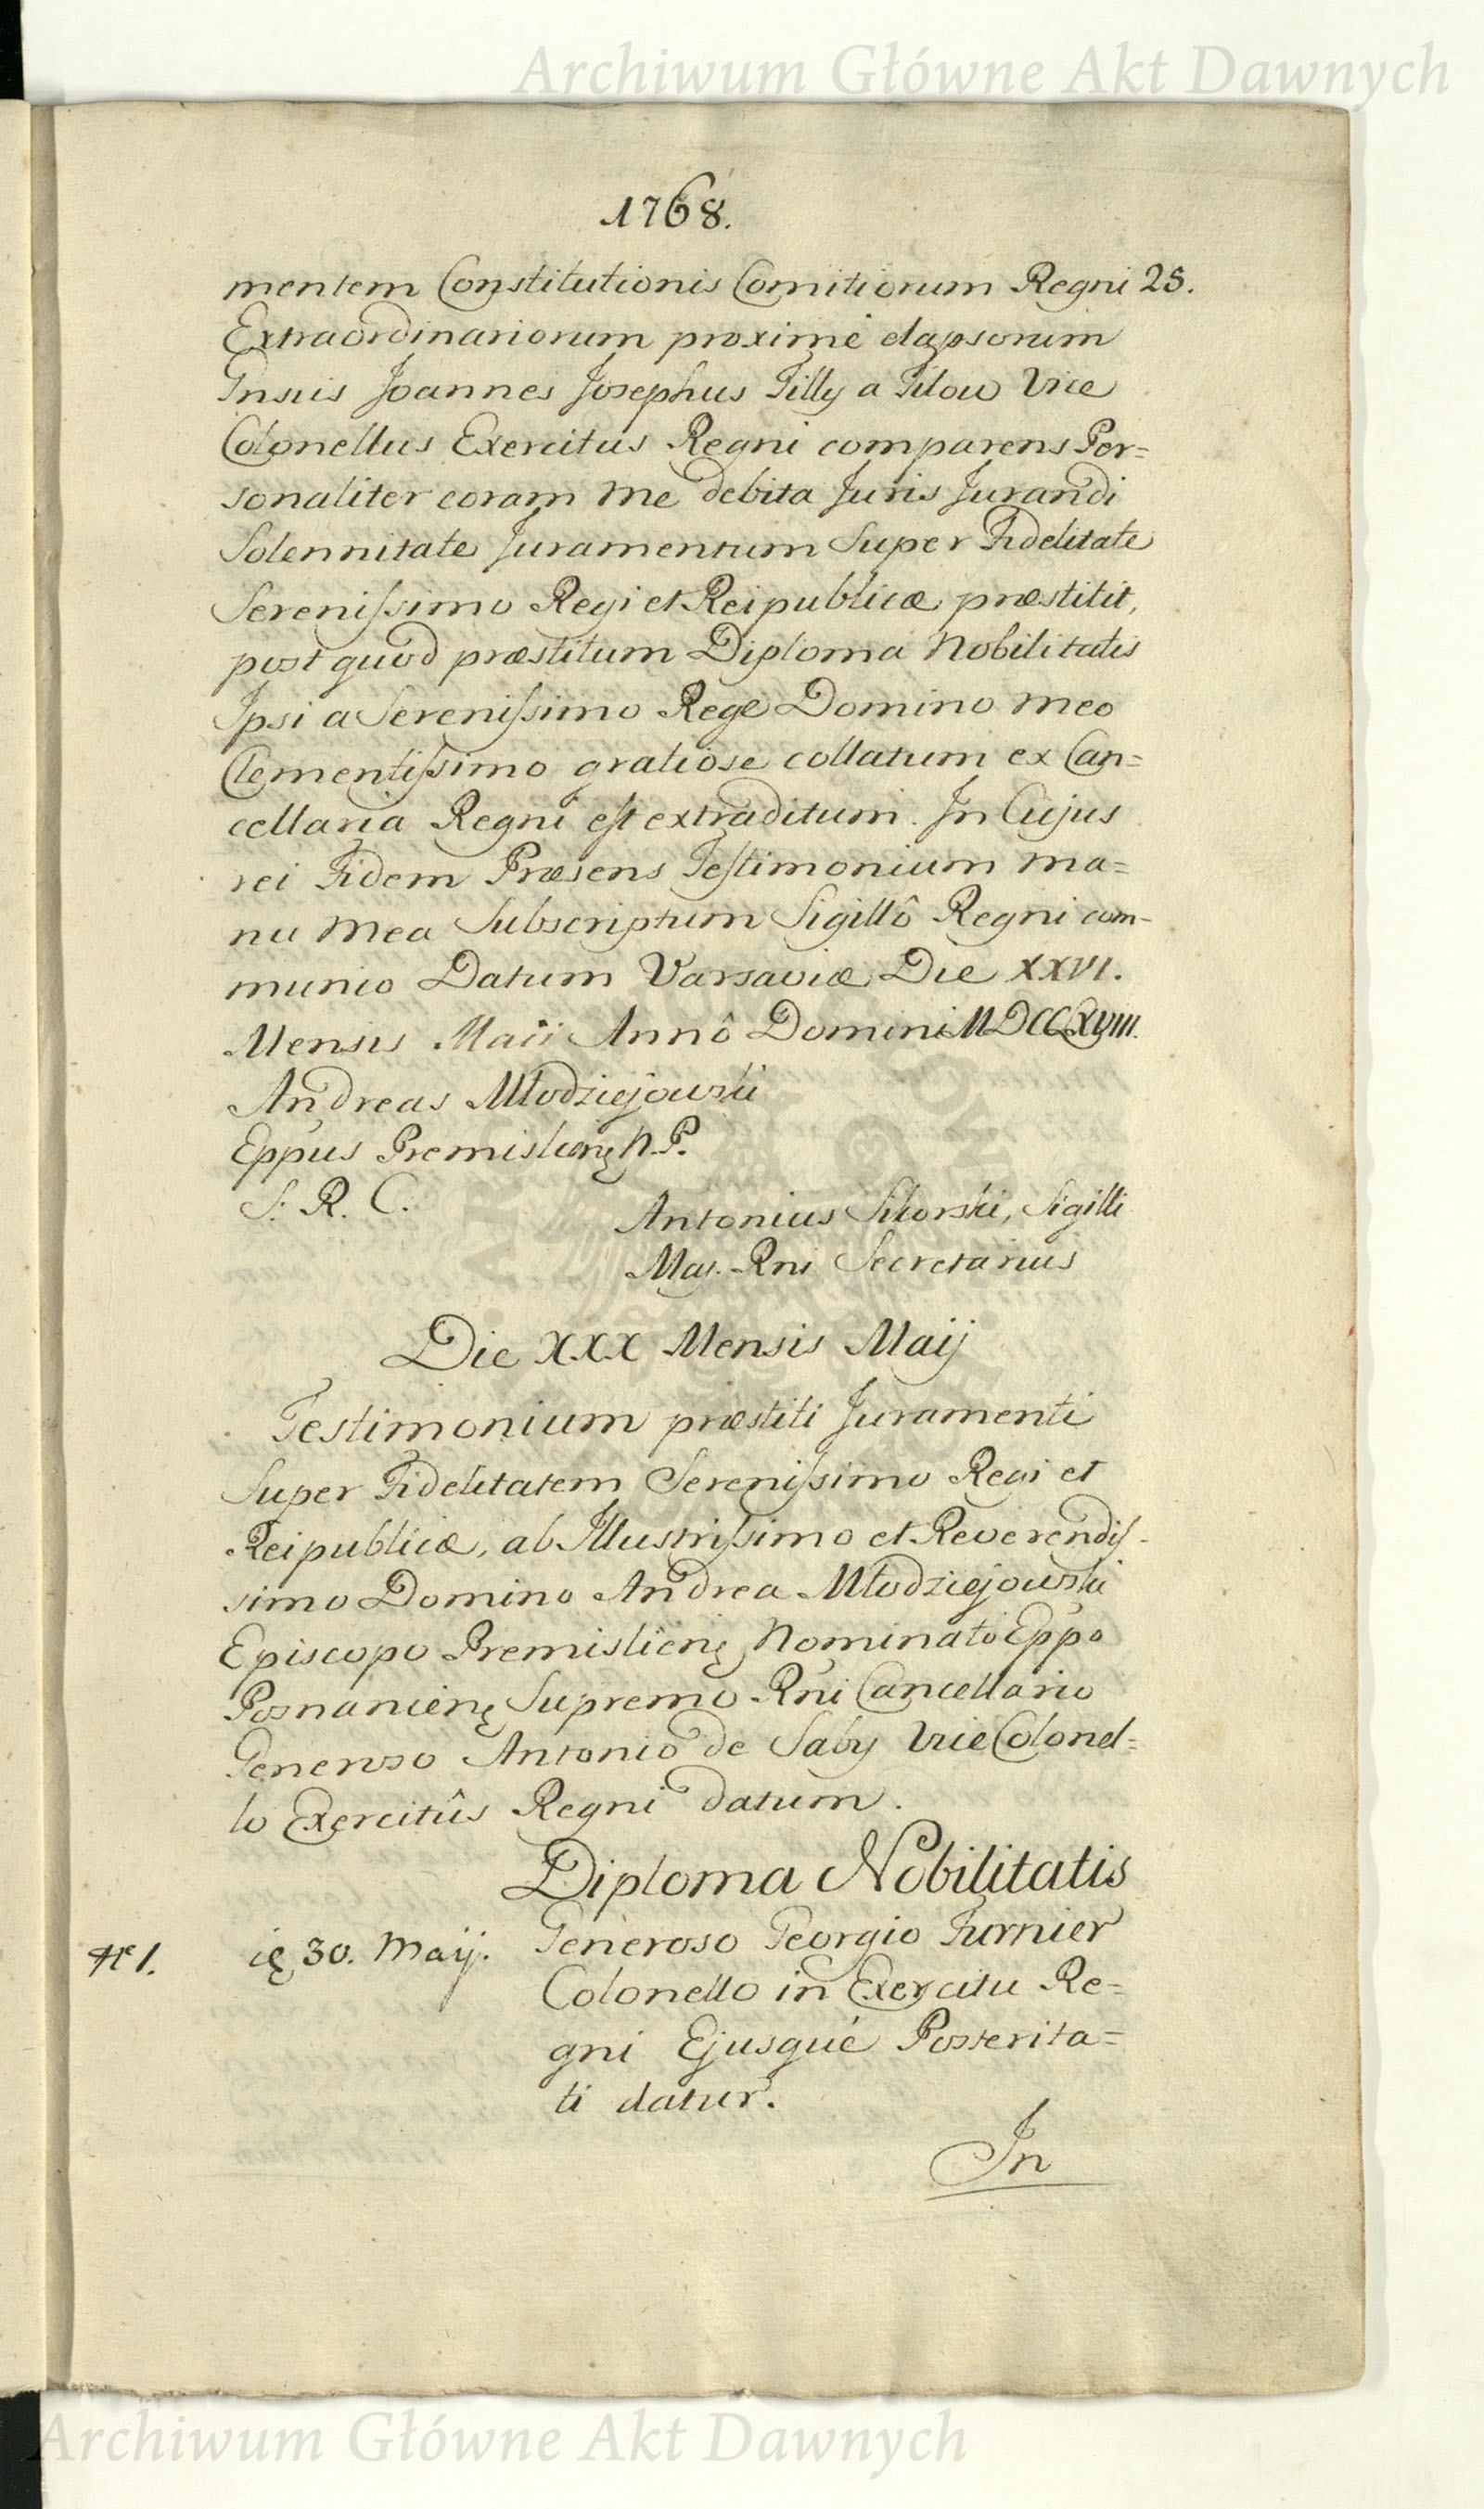 Archiwum Główne Akt Dawnych
1768.
mentem Constitutionis Comitiorum Regni 25.
Extraordinariorum proximè elapsorum
Gnsus Joannes Josephus Tilly a Tilow Vice
Colonellus Exercitus Regni comparens Per=
sonaliter coram me debita Juris Jurandi
Solennitate Juramentum Super Fidelitate
Serenissimo Regi et Reipublicæ præstitit,
post quod præstitum Diploma Nobilitatis
Ipsi a Serenissimo Rege Domino meo
Clementissimo gratiose collatum ex Can=
cellaria Regni est extraditum. In Cujus
rei Fidem Præsens Testimonium ma=
nu mea Subscriptum Sigillô Regni com-
munio Datum Varsaviæ Die XXVI.
Mensis Maii Annô Domini MDCCLXVIII.
Andreas Młodziejowski
Eppus Premislienę N.P.
S. R. C.
Antonius Sikorski, Sigilli
Maj. Rni Secretarius
Die XXX Mensis Maij
Testimonium præstiti Juramenti
Super Fidelitatem Serenissimo Regi et
Reipublicæ, ab Illustrissimo et Reverendis-
simo Domino Andrea Młodziejowski
Episcopo Premislienę Nominato Eppo
Posnanienę Supremo Rni Cancellario
Generoso Antonio de Saby Vice Colonel=
lo Exercitûs Regni datum.
Diploma Nobilitatis
№ 1. ię 30. Maij. Generoso Georgio Furnier
Colonello in Exercitu Re=
gni Ejusqué Posterita=
ti datur.
In
Archiwum Główne Akt Dawnych